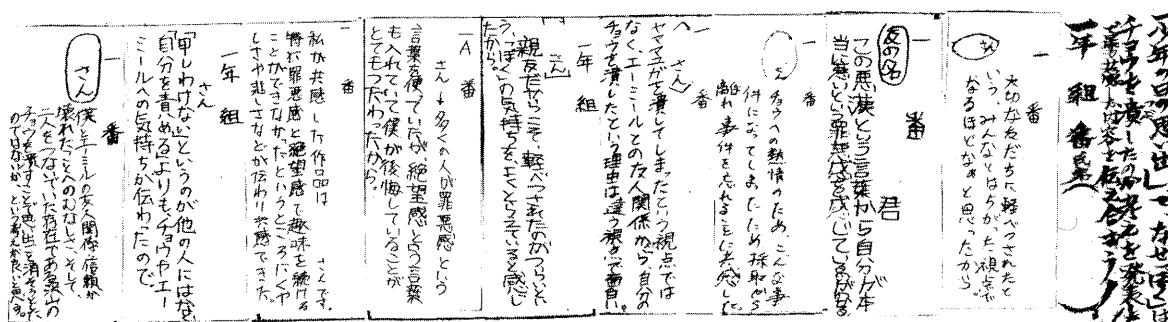 少年の日の思い出
して、なぜぼくは
チョウを潰したのか考えを発表
した内容を伝え合おう
一年 組 番 氏名(
一 番
さん
大切な友だちに軽べつされたと
いう、みんなとはちがった視点で
なるほどなぁと思ったから。
友の名
番 君
この悪漢という言葉から自分が本
当に悪いという罪悪感を感じているのが
一 番
さん
チョウへの熱情のため、こんな事
件になってしまったため採取から
離れ事件を忘れることに共感した
一 番
さん
ヤママユガを潰してしまったという視点では
なく、エーミールとの友人関係から自分の
チョウを潰したという理由は違う視点で面白い。
一年 組
さん
親友だからこそ、軽べつされたのがつらいとい
う、「ぼく」の気持ちをよくとらえていると感じ
たから。
一 番
A さん→多くの人が罪悪感という
言葉を使っていたが、絶望感という言葉
も入れていて僕が後悔していることが
とてもつたわったから。
一 番
私が共感した作品は さんです。
特に罪悪感と絶望感で趣味を続ける
ことができなかったというところにくや
しさや悲しさなどが伝わり共感できた。
一年 組
さん
「申しわけない」というのが他の人にはなく
自分を責める」よりもチョウやエー
ミールへの気持ちが伝わったので
一 番
さん
僕とエーミールの友人関係、信頼が
壊れたことへのむなしさ、そして、
二人をつないでいた存在である
チョウを潰すことで思い出を消そうとした
のではないか、という考えが良いと思う。